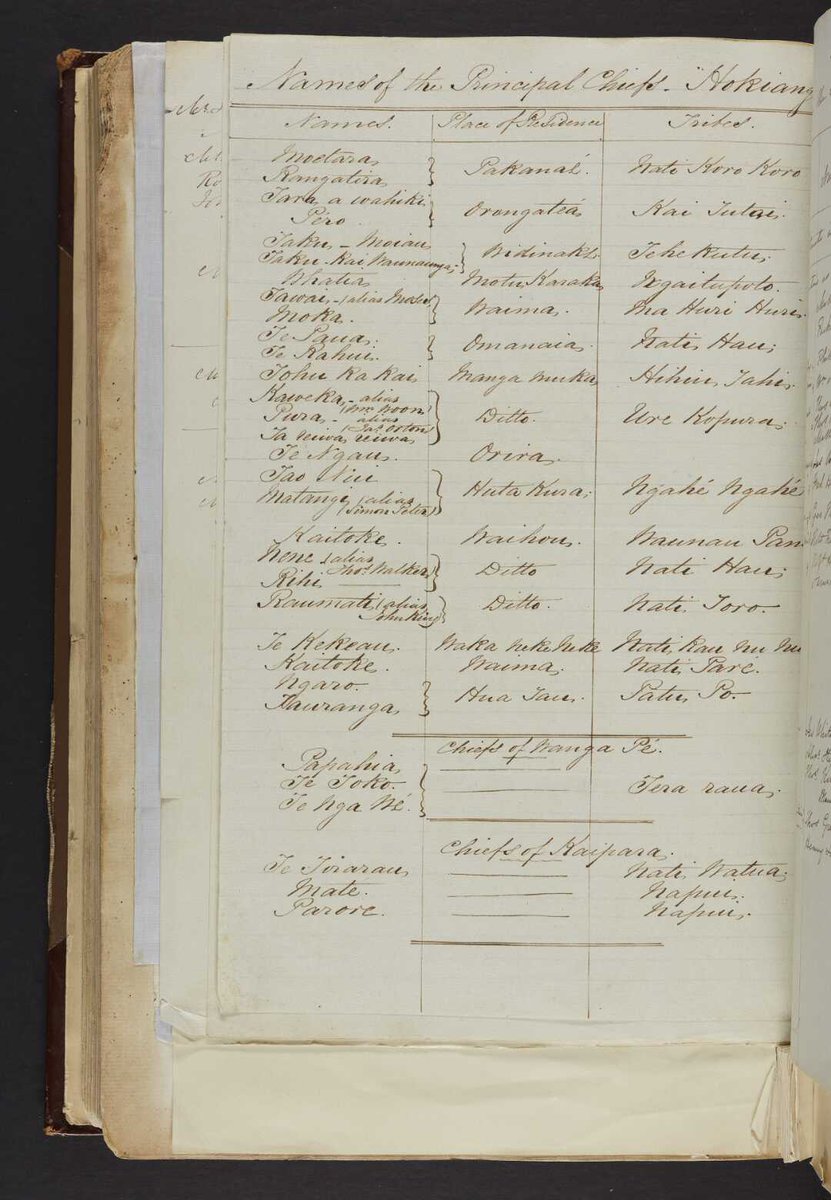 Names of the Principal Chiefs - Hokiang
Names. Place of Residence Tribes.
Moetara
Rangatira } Pakanaé. Nati Koro Koro
Tara a wahiki
Péro } Orongateá Kai Tutui.
Taku - Moiau
Taku - Kai Waunaunga } Te he Kutu;
Whatia Motu Karaka Ngaitupoto.
Tawai - (alias
Moka. } Waima. Ma Huri Huri.
Te Paua.
Te Kahu. } Omanaia. Nati Hau;
Tohu ka kai Manga muka Hihiu Tahi.
Kaweka - alias
(Wm. Noon
Pura - alias
(Jas. Orton } Ditto. Ure Kopura.
Ta reiwa reiwa
Te Ngau. Orira.
Tao Nui
Matangi (alias
(Simon Peter) } Huta Kura; Ngahé Ngahé
Kaitoke. Waihou. Waunau Pan
Nene (alias
Thos. Walker)
Rihi } Ditto Nati Hau;
Raumati (alias
John King } Ditto. Nati Toro.
Te Kekeau. Waka neke neke Nati kau nu nu
Kaitoke. Waima. Nati Paré.
Ngaro.
Tauranga } Hua Tau. Patu Po.
Chiefs of Wanga Pé.
Papahia
Te Toko. Tera raua;
Te Nga Wé.
Chiefs of Kaipara.
Te Tirarau Nati Watua;
Mate. Napui.
Parore. Napui.